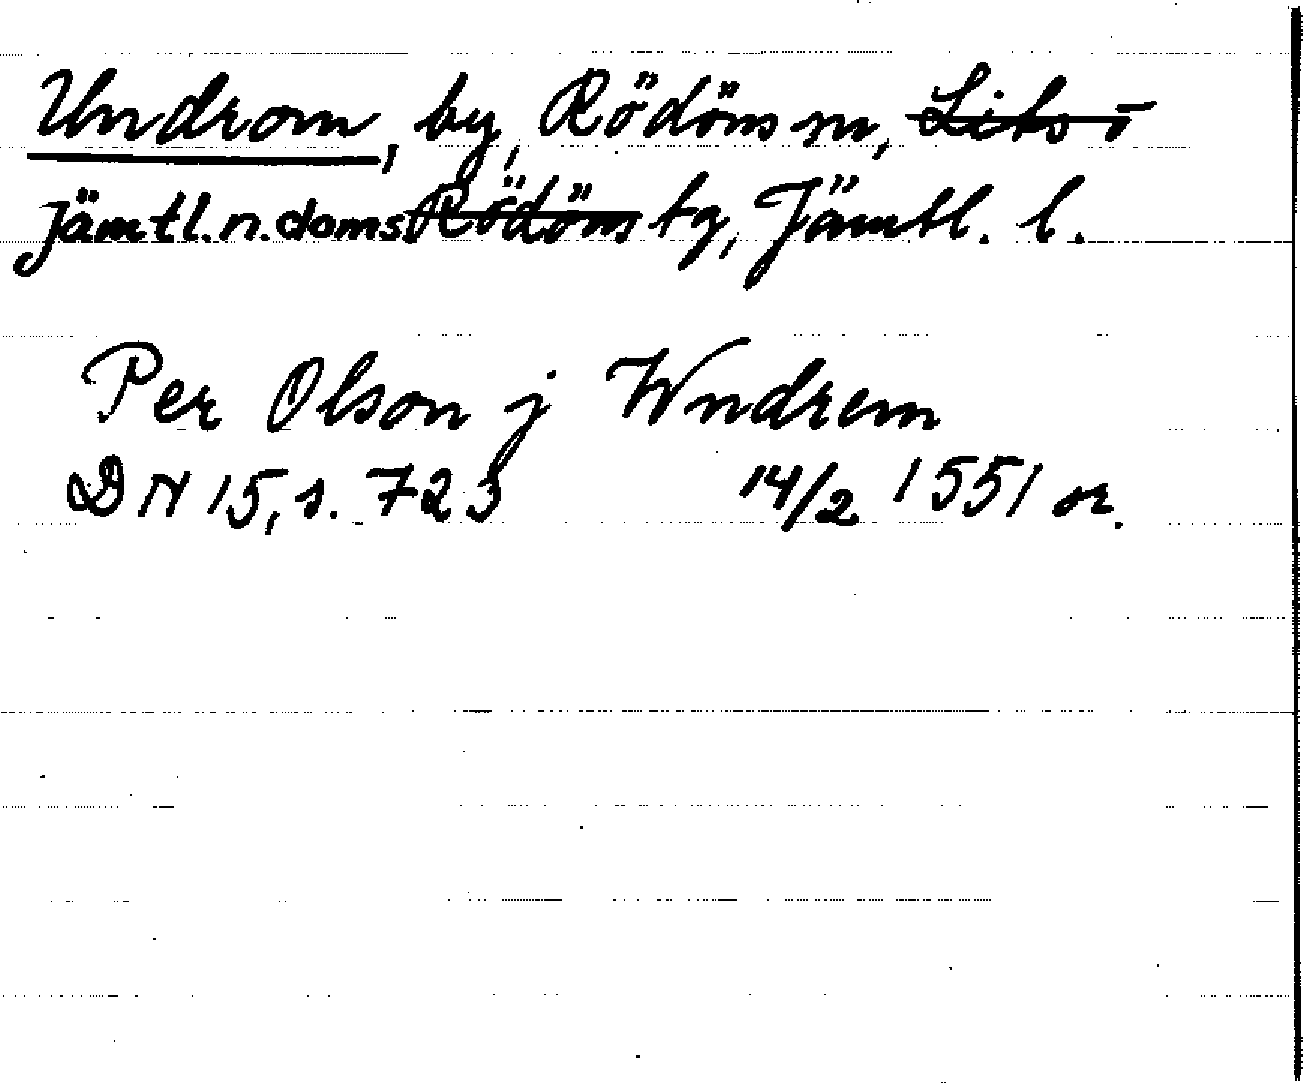 Undrom, by, Rödöns sn, Lits o
Jämtl.n.doms Rödöns tg, Jämtl. l.
Per Olson j Wndrem
DN 15, s. 723 14/2 1551 or.